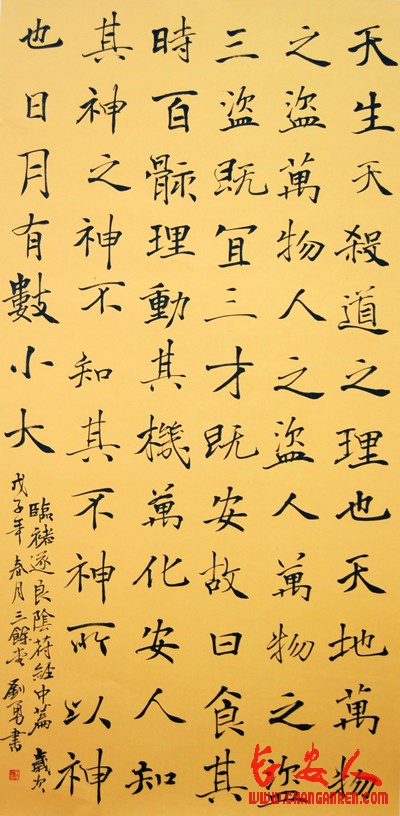 天生天殺道之理也天地萬物
之盜萬物人之盜人萬物之盜
三盜既冝三才既安故曰食其
時百骸理動其機萬化安人知
其神之神不知其不神所以神
也日月有數小大
臨褚遂良陰苻經中篇 歲次
戊子年春月三餘堂劉勇書
长安人
WWW.CHANGANREN.COM